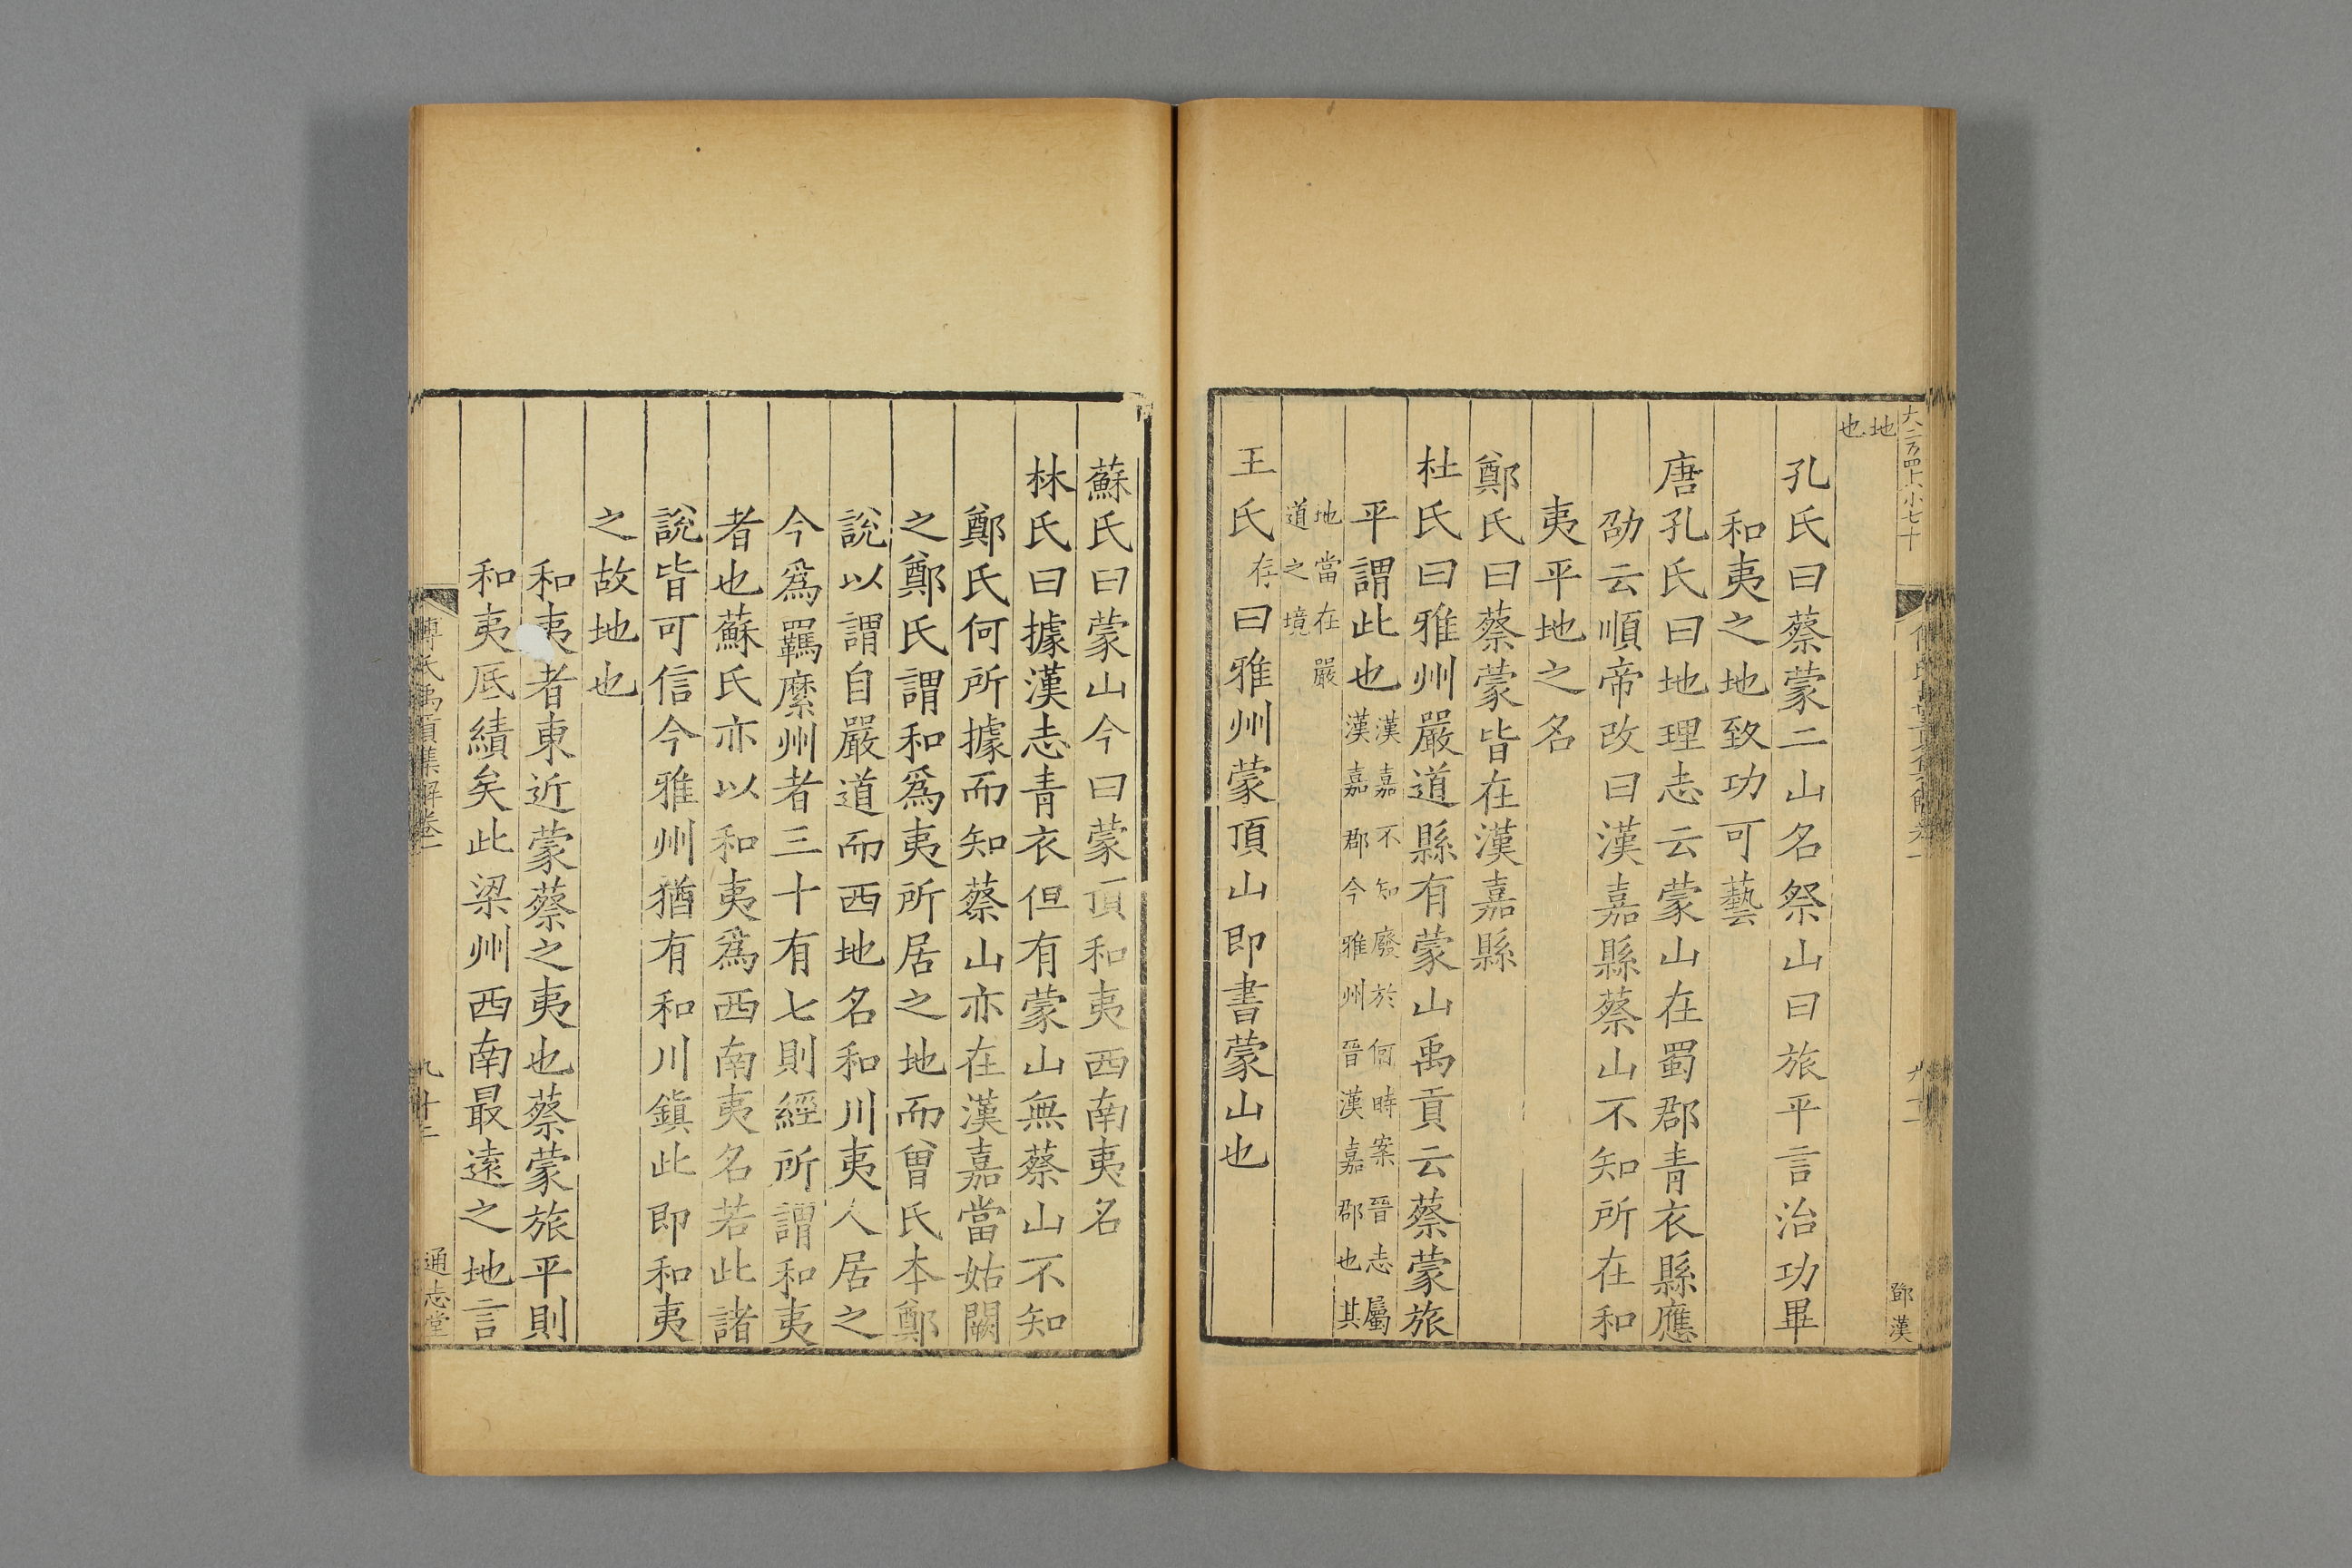 地
也
孔氏曰蔡蒙二山名祭山曰旅平言治功畢
和夷之地致功可藝
唐孔氏曰地理志云蒙山在蜀郡青衣縣應
劭云順帝改曰漢嘉縣蔡山不知所在和
夷平地之名
鄭氏曰蔡蒙皆在漢嘉縣
杜氏曰雅州嚴道縣有蒙山禹貢云蔡蒙旅
平謂此也
漢嘉不知廢於何時案晉志屬
漢嘉郡今雅州晉漢嘉郡也其
地當在嚴
道之境
王氏存曰雅州蒙頂山即書蒙山也
鄧漢
蘇氏曰蒙山今曰蒙頂和夷西南夷名
林氏曰據漢志青衣但有蒙山無蔡山不知
鄭氏何所據而知蔡山亦在漢嘉當姑闕
之鄭氏謂和為夷所居之地而曾氏本鄭
說以謂自嚴道而西地名和川夷人居之
今為羈縻州者三十有七則經所謂和夷
者也蘇氏亦以和夷為西南夷名若此諸
說皆可信今雅州猶有和川鎮此即和夷
之故地也
和夷者東近蒙蔡之夷也蔡蒙旅平則
和夷厎績矣此梁州西南最遠之地言
傅氏禹貢集解卷一
九十三
通志堂